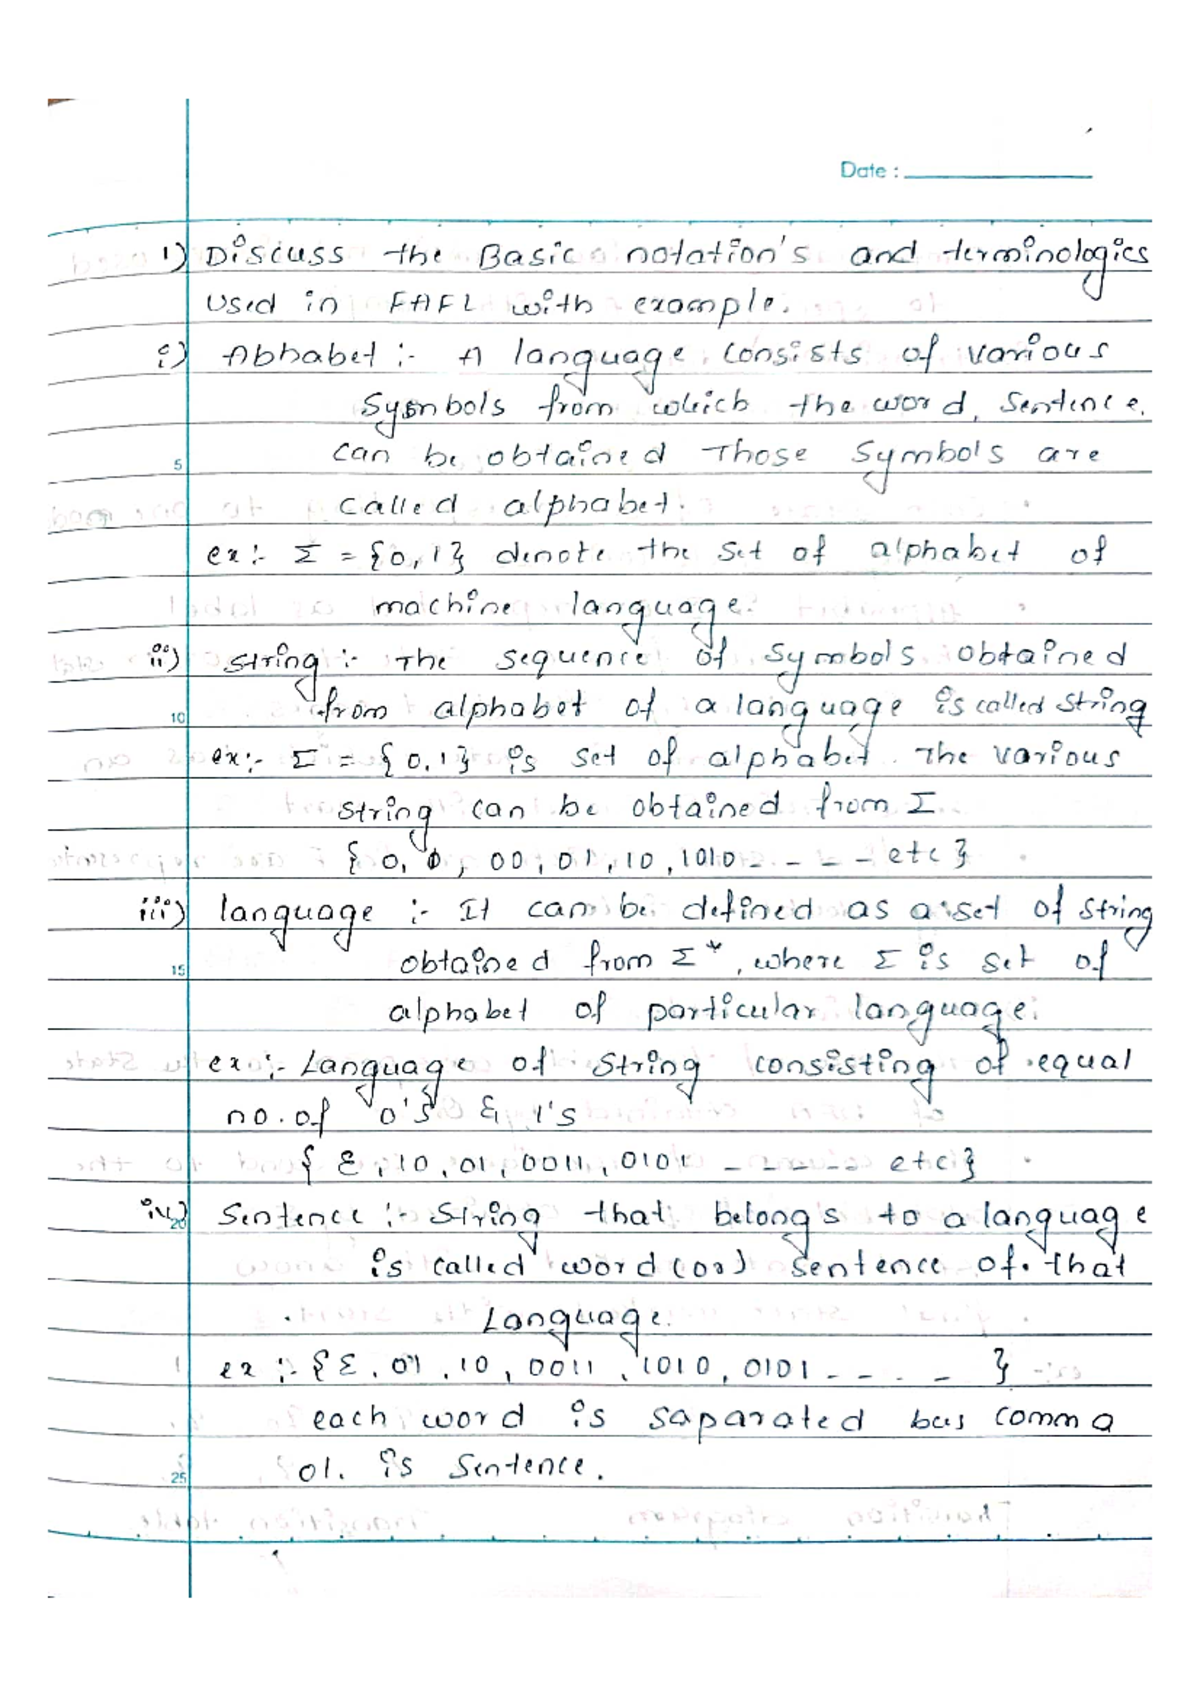 Date :
1) Discuss the Basic notation's and terminologics
Used in FAFL with example.
i) Abhabet :- A language consists of various
Symbols from which the word, Sentence,
can be obtained Those Symbols are
called alphabet.
5
ex :- Σ = {0, 1} denote the set of alphabet of
machine language.
ii) string :- The sequence of symbols obtained
from alphabet of a language is called string
10
ex :- Σ = {0, 1} is set of alphabet. The various
string can be obtained from Σ
{ 0, 1, 00, 01, 10, 1010 - - - - etc }
iii) language :- It can be defined as a set of string
obtained from Σ*, where Σ is set of
15
alphabet of particular language.
ex :- Language of string consisting of equal
no. of 0's & 1's
{ ε, 10, 01, 0011, 0101 - - - - - etc }
iv) Sentence :- String that belongs to a language
20
is called word (or) sentence of that
Language.
ex :- { ε, 01, 10, 0011, 1010, 0101 - - - - }
each word is saparated bus comma
01. is Sentence.
25